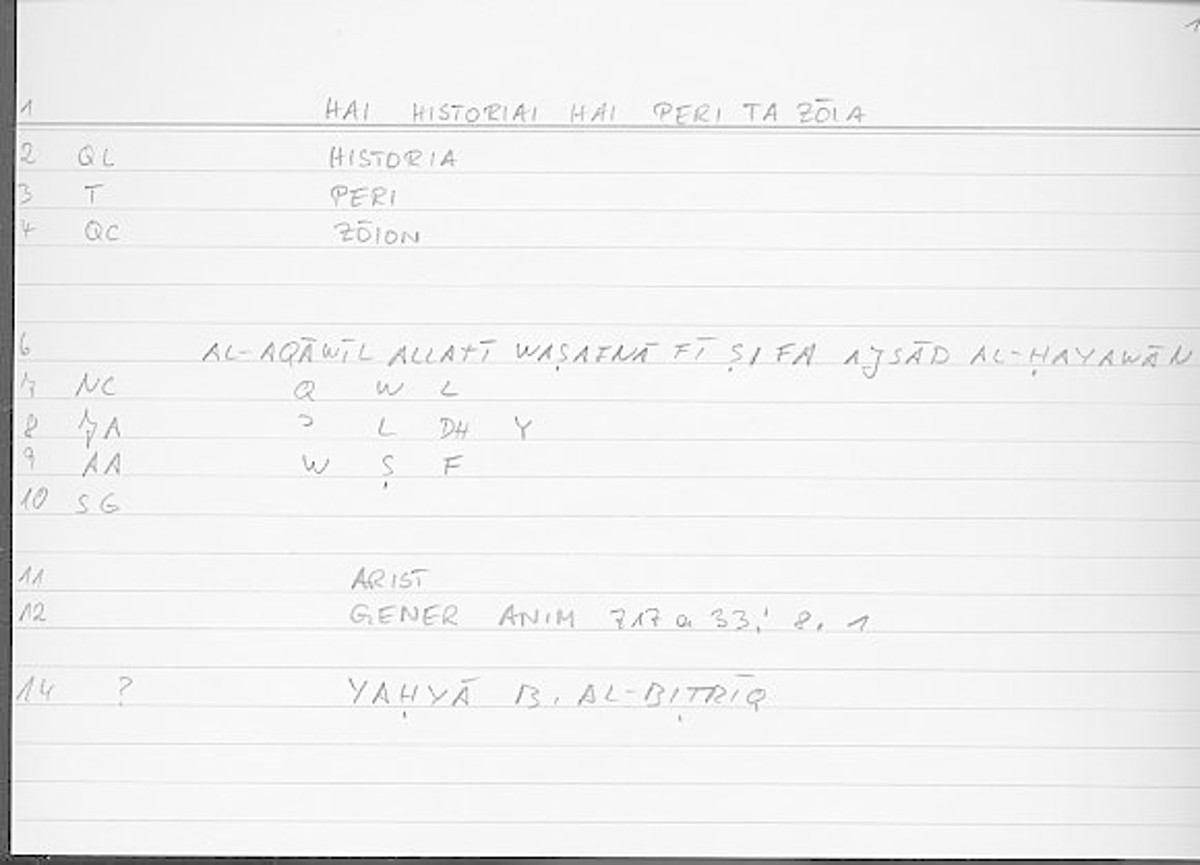 1
1 HAI HISTORIAI HAI PERI TA ZŌIA
2 QL HISTORIA
3 T PERI
4 QC ZŌION
6 AL-AQĀWĪL ALLATĪ WAṢAFNĀ FĪ ṢIFA AJSĀD AL-ḤAYAWĀN
7 NC Q W L
8 JA ʾ L DH Y
9 AA W Ṣ F
10 SG
11 ARIST
12 GENER ANIM 717 a 33; 8. 1
14 ? YAḤYĀ B. AL-BIṬRĪQ